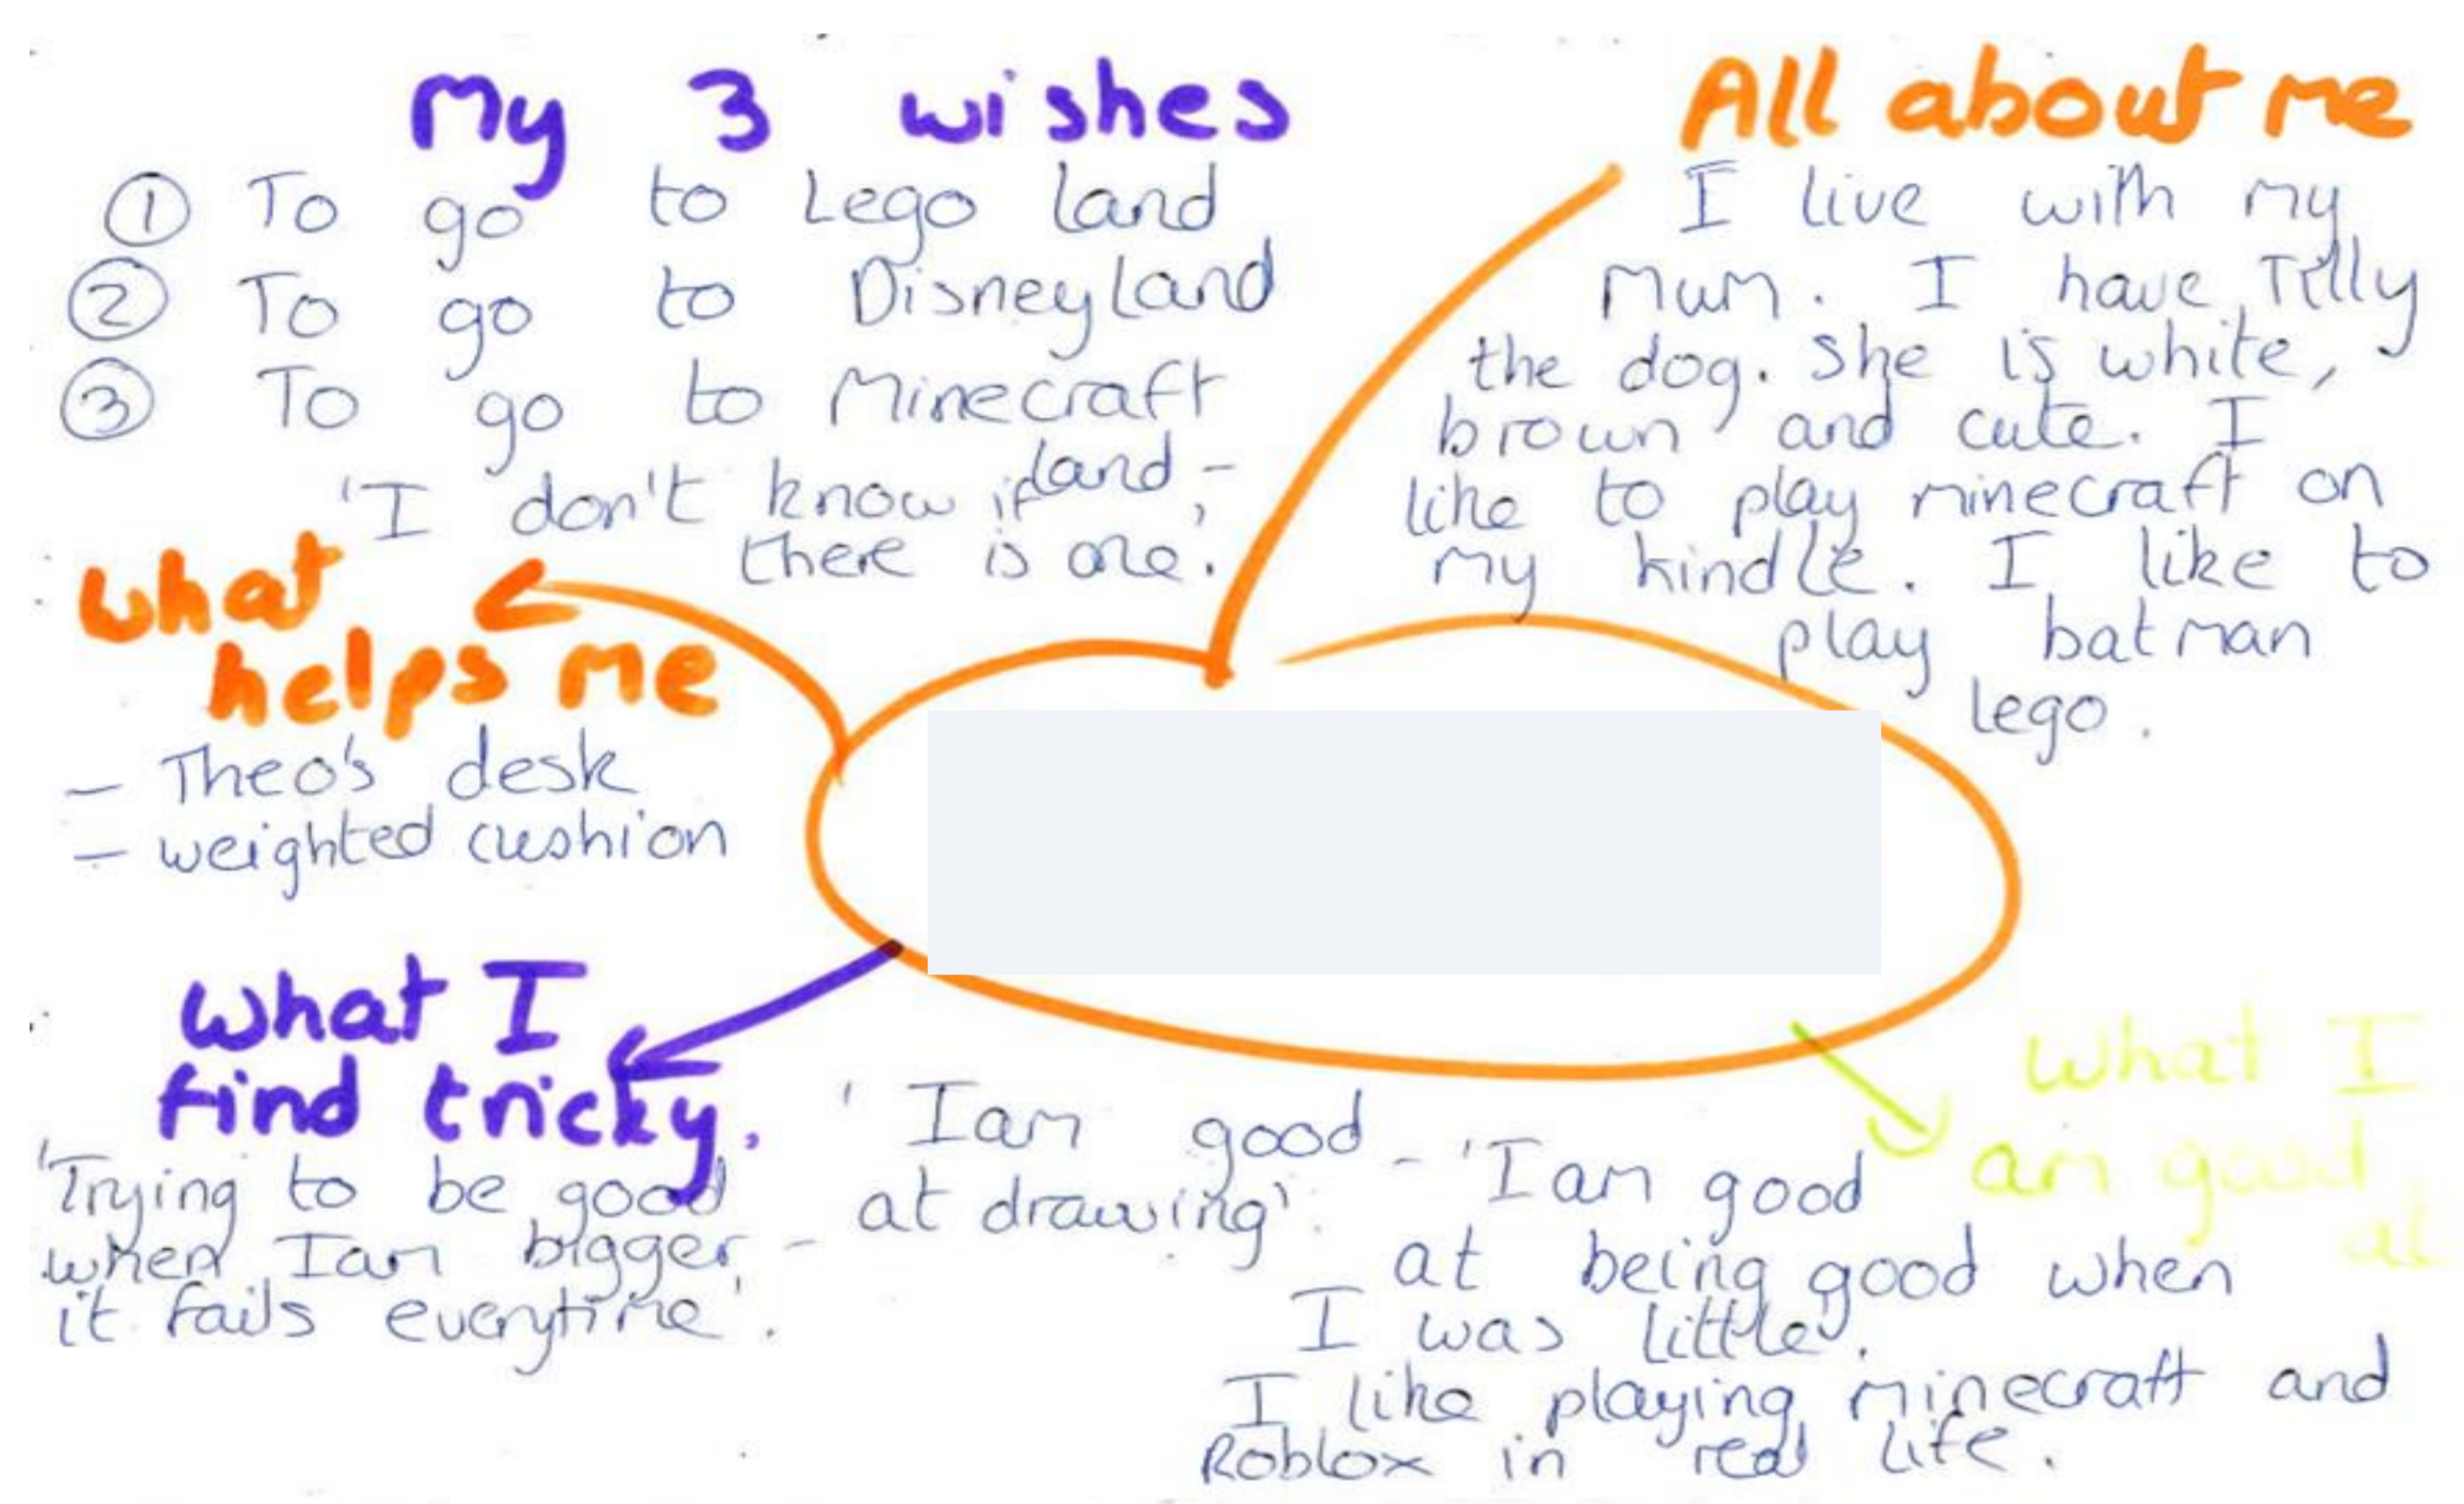 My 3 wishes
① To go to Lego land
② To go to Disneyland
③ To go to Minecraft
land, -
'I don't know if
there is one'.
All about me
I live with my
mum. I have Tilly
the dog. She is white,
brown and cute. I
like to play minecraft on
my kindle. I like to
play batman
lego.
What
helps me
- Theo's desk
- weighted cushion
What I
find tricky.
'Trying to be good
when I am bigger,
it fails everytime'.
What I
am good
at
- 'I am good
at drawing'.
- 'I am good
at being good when
I was little'.
I like playing minecraft and
Roblox in real life.